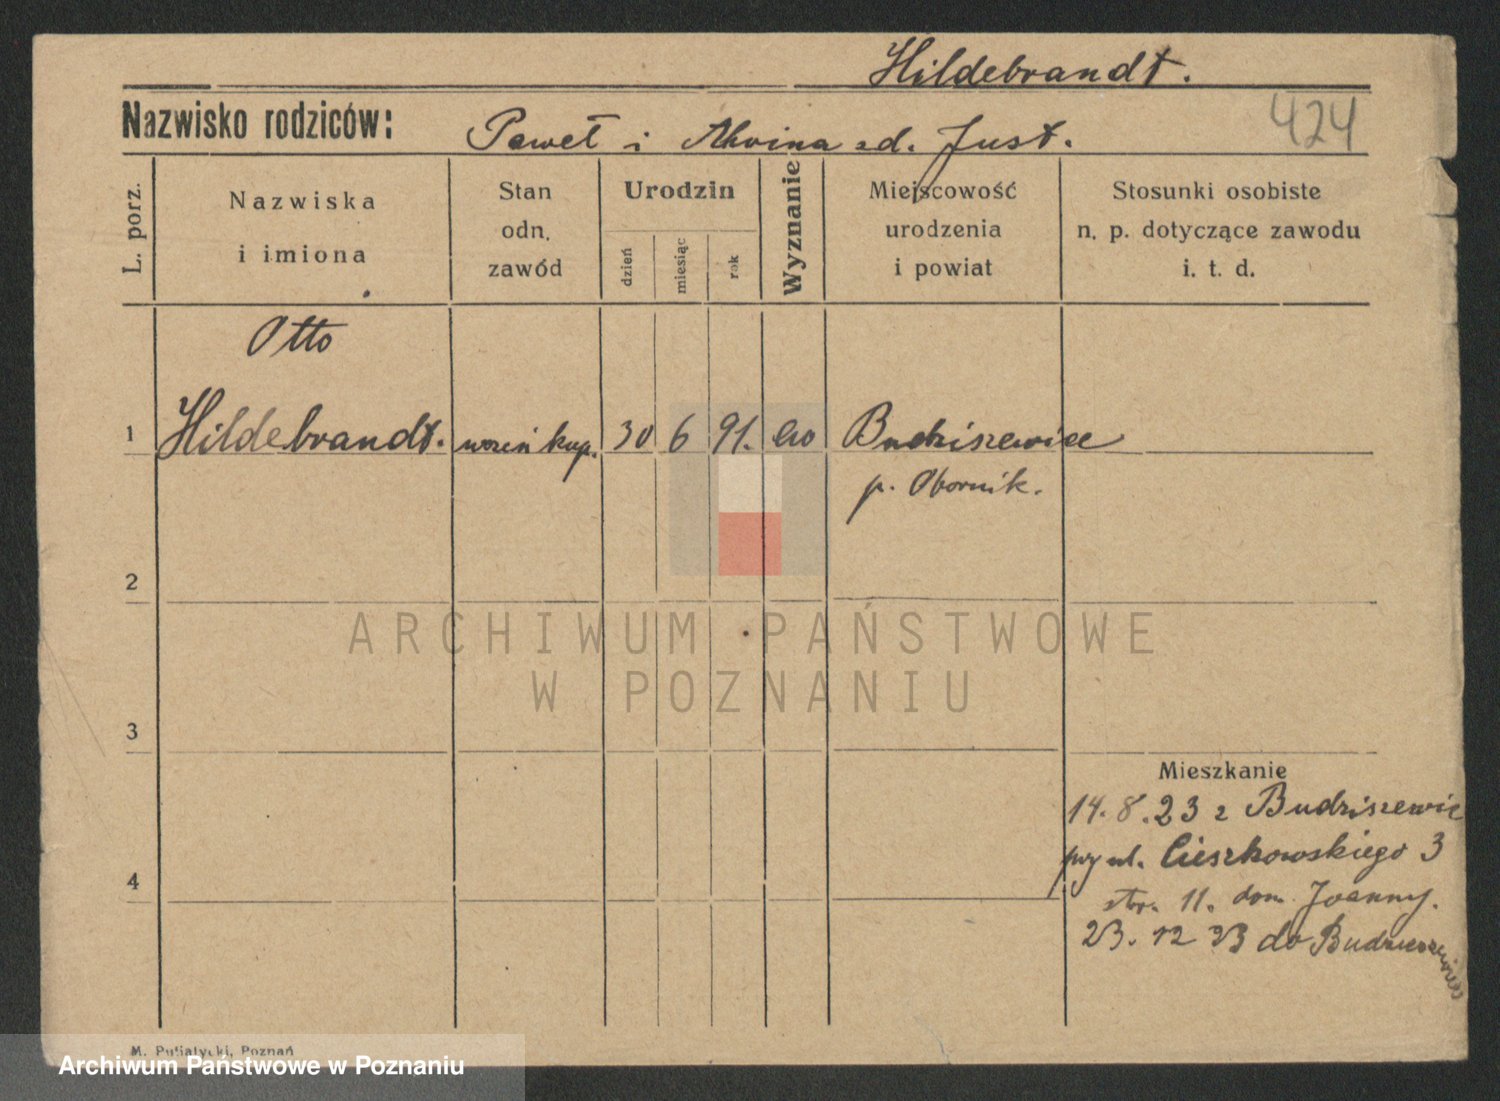 Hildebrandt.
Nazwisko rodziców:
Paweł i Alwina zd. Just.
424
L. porz.
Nazwiska
i imiona
Stan
odn.
zawód
Urodzin
dzień
miesiąc
rok
Wyznanie
Miejscowość
urodzenia
i powiat
Stosunki osobiste
n. p. dotyczące zawodu
i. t. d.
Otto
1 Hildebrandt. kup. 30 6 91. Budziszewice
p. Obornik.
2
ARCHIWUM PAŃSTWOWE
W POZNANIU
3
Mieszkanie
14. 8. 23 z Budziszewic
przy ul. Cieszkowskiego 3
4
str. 11. dom. Joanny.
23. 12 23 do Budziszewice
M. Putiatycki, Poznań
Archiwum Państwowe w Poznaniu